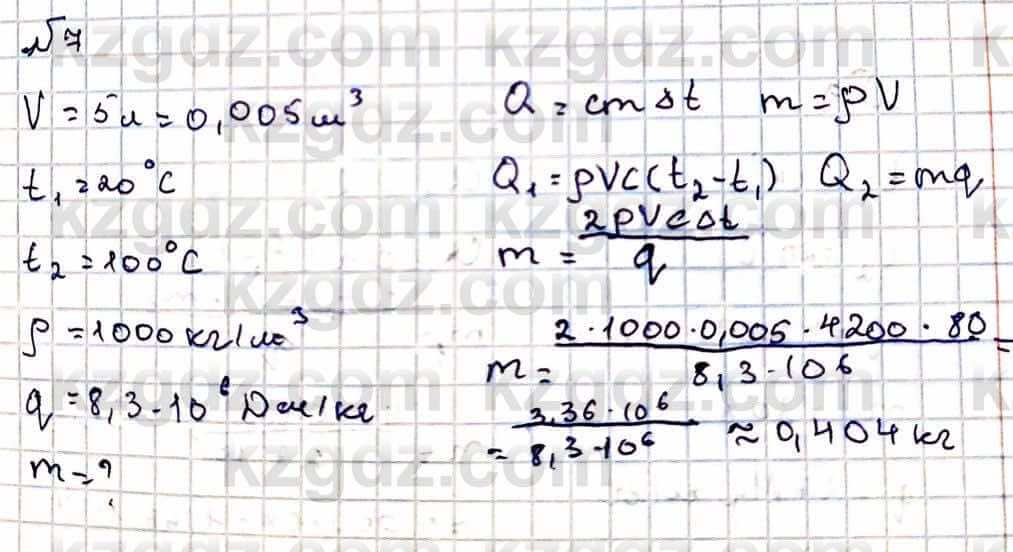 №7
V = 5л = 0,005 м³
t₁ = 20°C
t₂ = 100°C
ρ = 1000 кг/м³
q = 8,3·10⁶ Дж/кг
m = ?
Q = cmΔt m = ρV
Q₁ = ρVc(t₂-t₁) Q₂ = mq
m = 2ρVcΔt / q
m = 2·1000·0,005·4200·80 / 8,3·10⁶ =
= 3,36·10⁶ / 8,3·10⁶ ≈ 0,404 кг
kzgdz.com